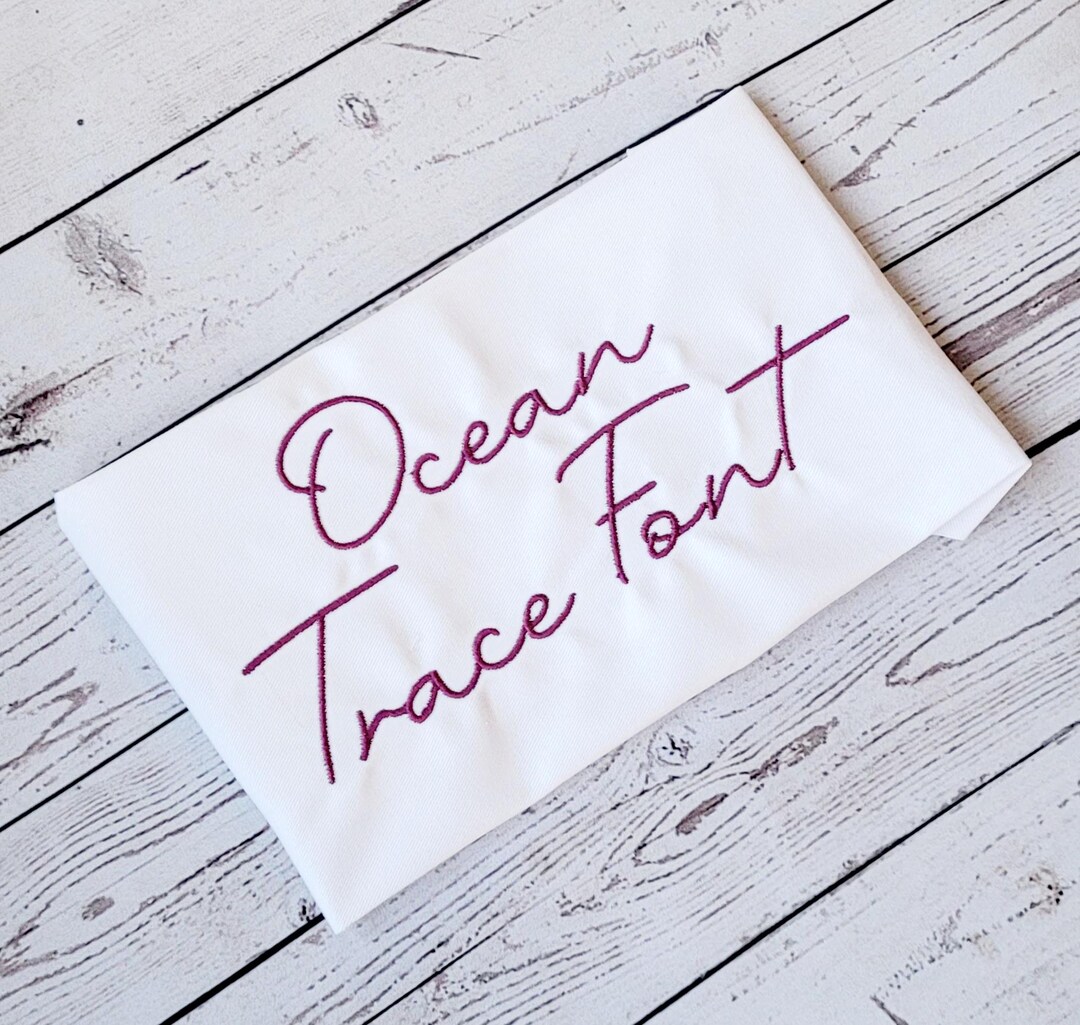 Ocean
Trace Font